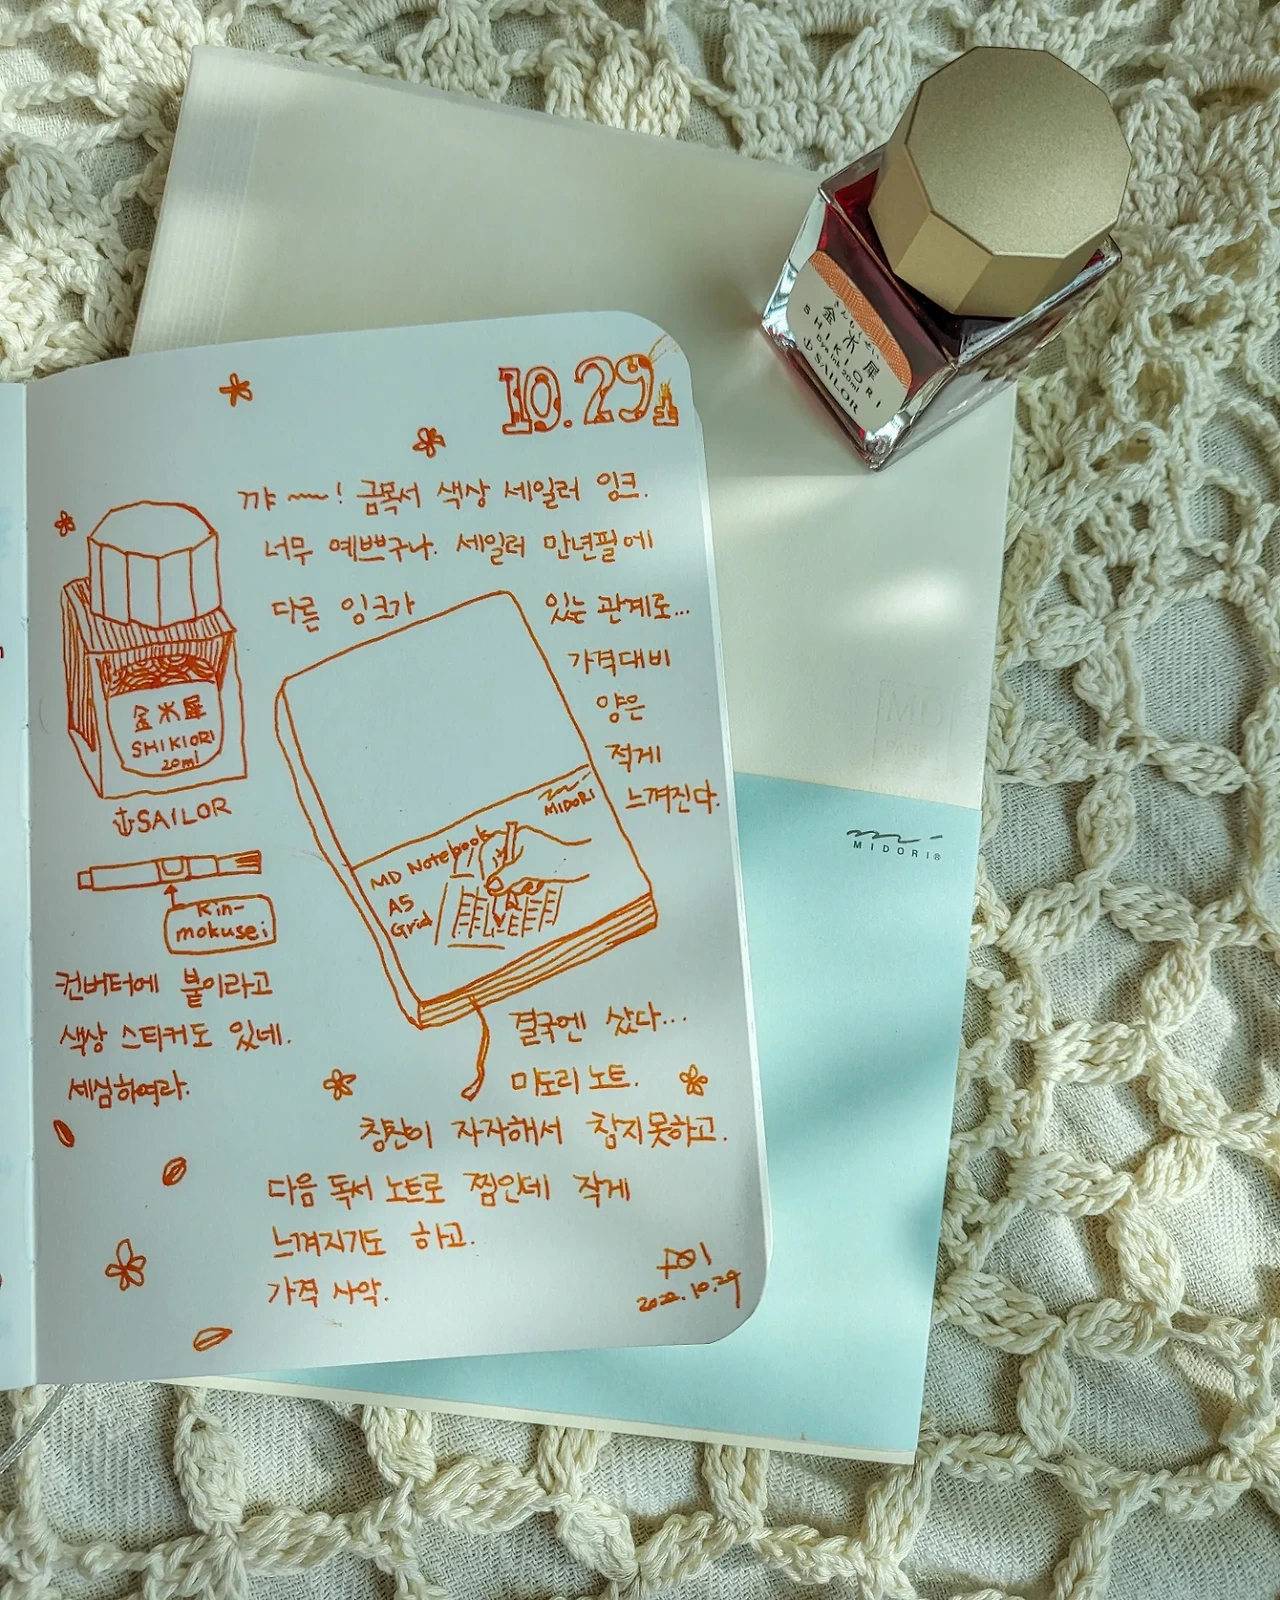 10.29
꺄~! 금목서 색상 세일러 잉크.
너무 예쁘구나. 세일러 만년필에
다른 잉크가 있는 관계로...
가격대비
양은
적게
느껴진다.
金木犀
SHIKIORI
20ml
SAILOR
Kin-
mokusei
컨버터에 붙이라고
색상 스티커도 있네.
세심하여라.
MIDORI
MD Notebook
A5
Grid
결국엔 샀다...
미도리 노트.
칭찬이 자자해서 참지못하고.
다음 독서 노트로 찜인데 작게
느껴지기도 하고.
가격 사악.
2022.10.29
きんもくせい
金木犀
SHIKIORI
Dye ink 20ml
SAILOR
MD
PAPER
MIDORI®